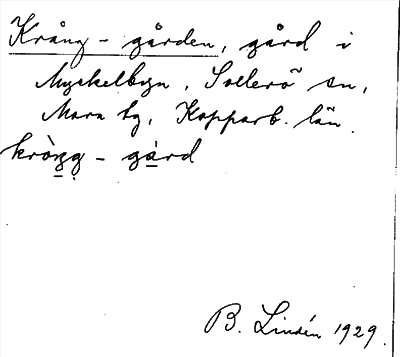 Krång - gården, gård i
Myckelbyn, Sollerö sn,
Mora tg, Kopparb. län.
kròŋg - gàrd
B. Lindén 1929.